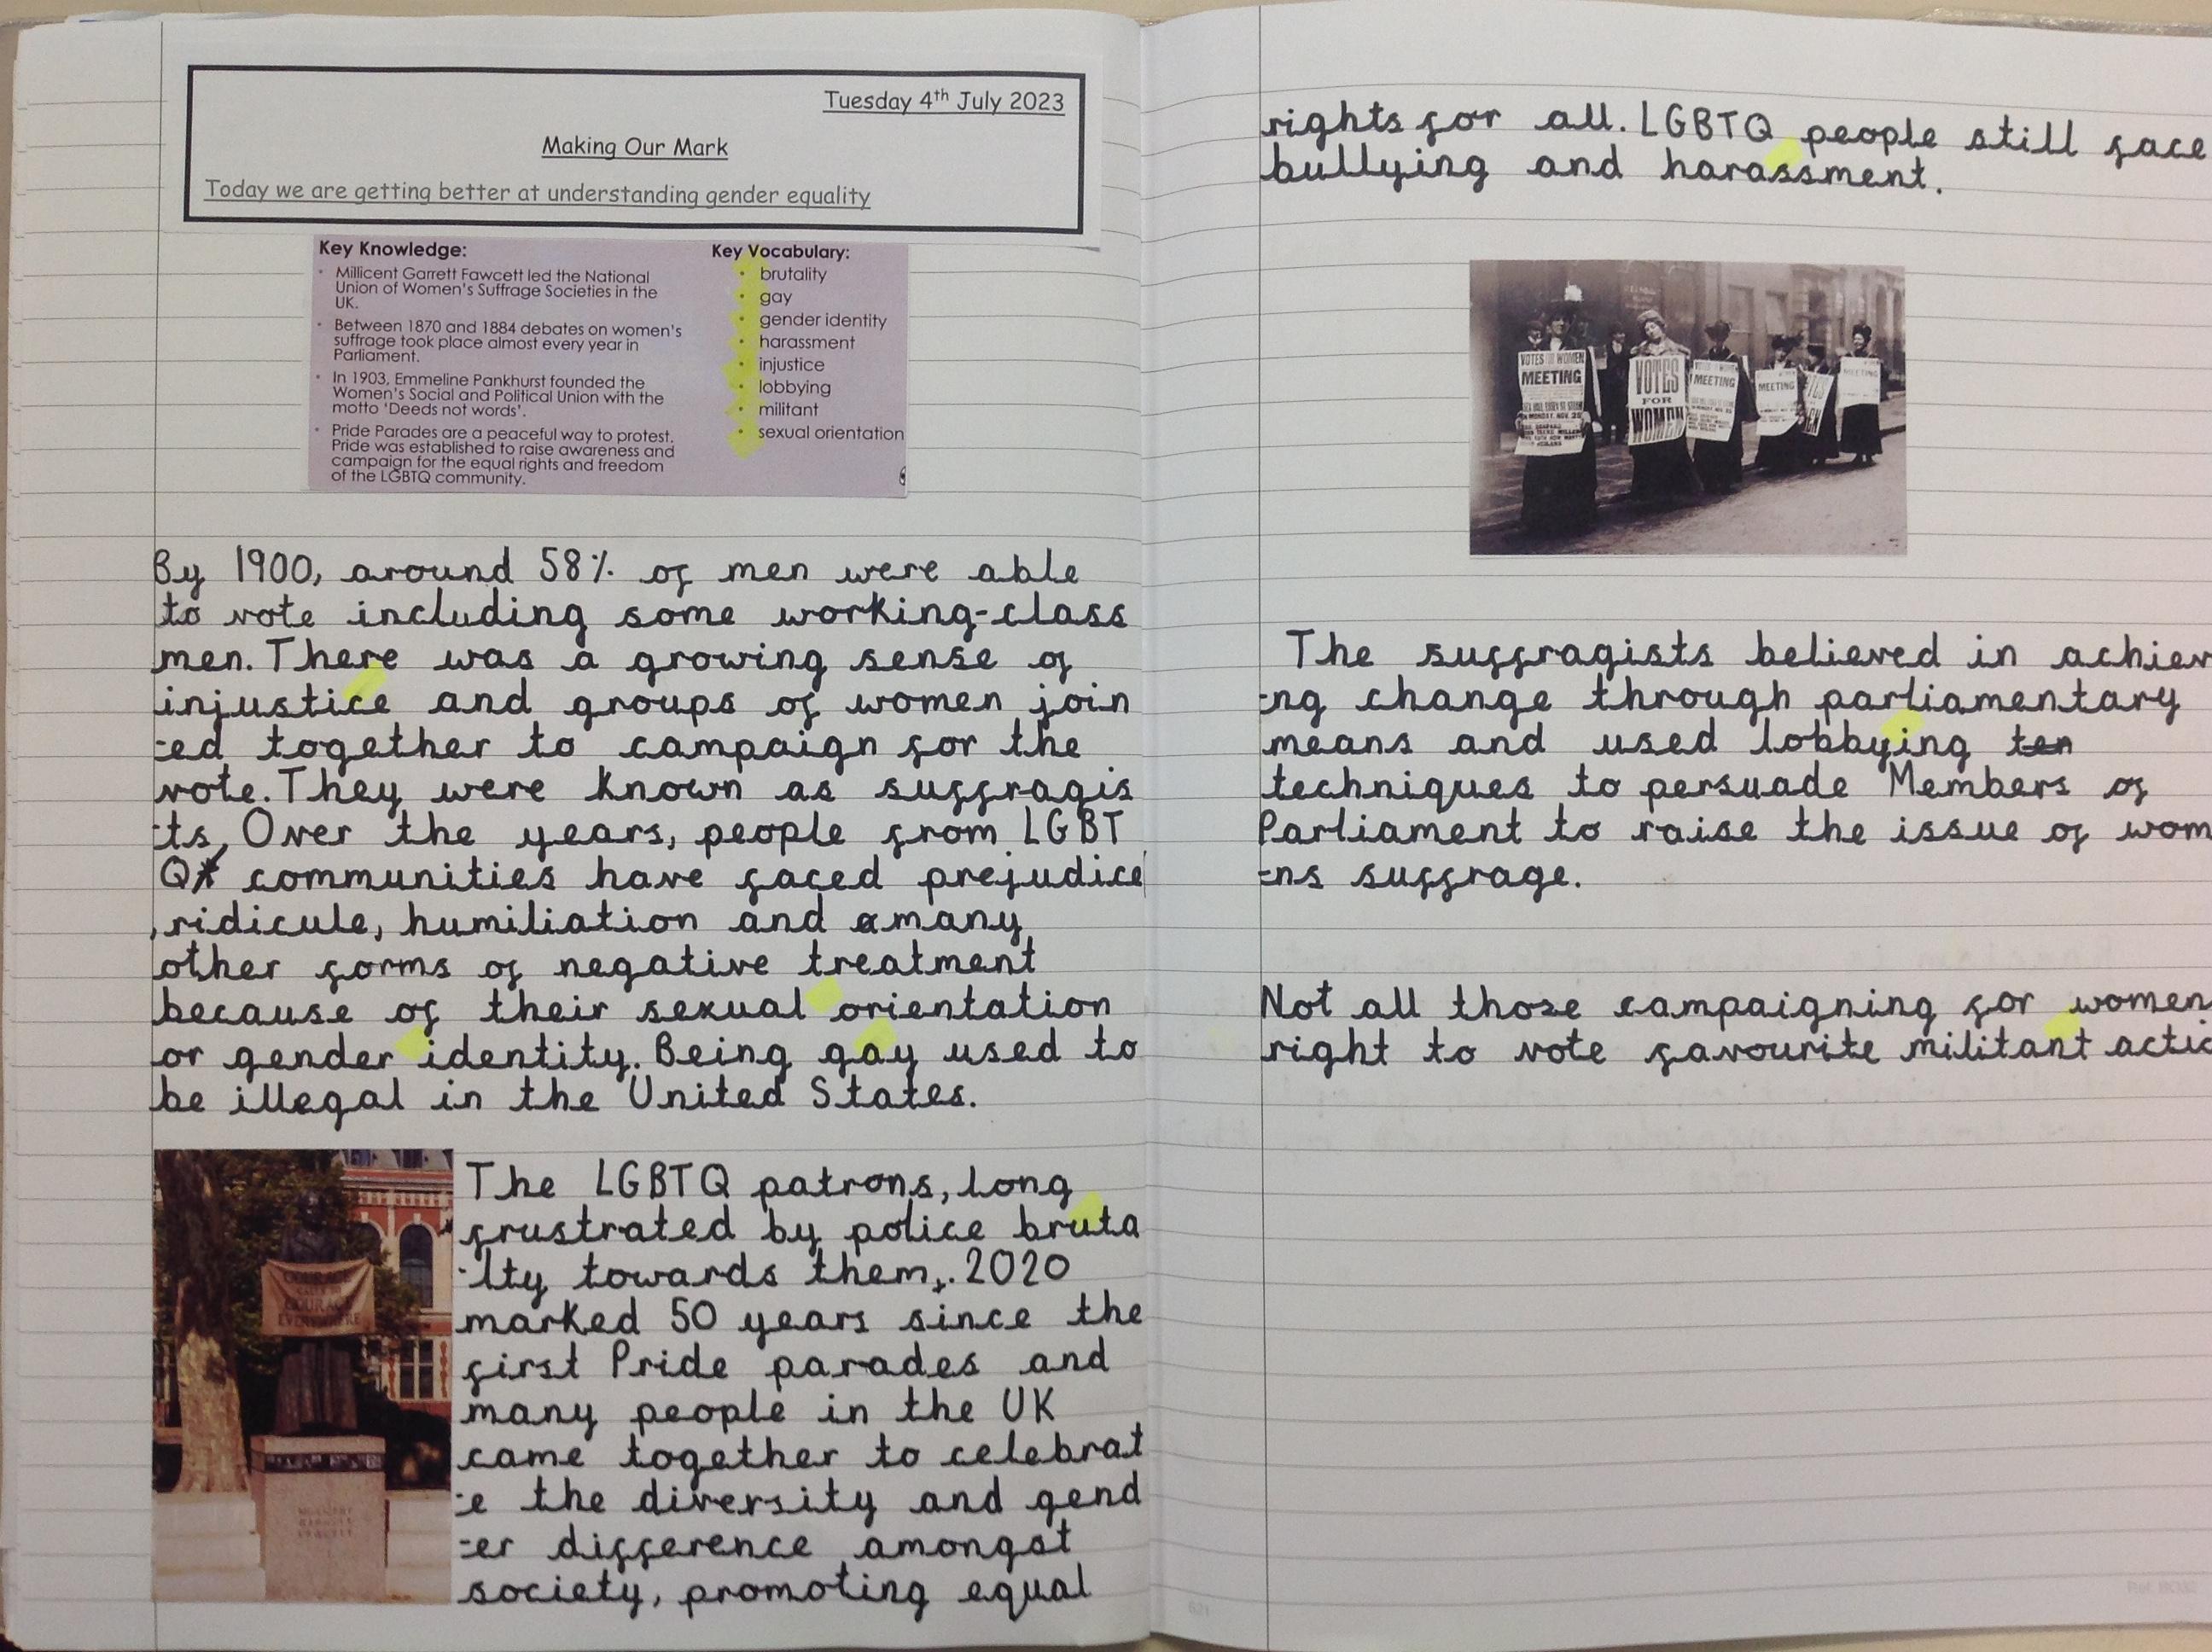 Tuesday 4th July 2023
Making Our Mark
Today we are getting better at understanding gender equality
Key Knowledge:
• Millicent Garrett Fawcett led the National
Union of Women's Suffrage Societies in the
UK.
• Between 1870 and 1884 debates on women's
suffrage took place almost every year in
Parliament.
• In 1903, Emmeline Pankhurst founded the
Women's Social and Political Union with the
motto 'Deeds not words'.
• Pride Parades are a peaceful way to protest.
Pride was established to raise awareness and
campaign for the equal rights and freedom
of the LGBTQ community.
Key Vocabulary:
• brutality
• gay
• gender identity
• harassment
• injustice
• lobbying
• militant
• sexual orientation
By 1900, around 58% of men were able
to vote including some working-class
men. There was a growing sense of
injustice and groups of women join
-ed together to campaign for the
vote. They were known as suffragis
-ts, Over the years, people from LGBT
Q communities have faced prejudice
,ridicule, humiliation and many
other forms of negative treatment
because of their sexual orientation
or gender identity. Being gay used to
be illegal in the United States.
COURAGE
CALLS TO
COURAGE
EVERYWHERE
MILLICENT
GARRETT
FAWCETT
The LGBTQ patrons, long
frustrated by police bruta
-lty towards them,. 2020
marked 50 years since the
first Pride parades and
many people in the UK
came together to celebrat
-e the diversity and gend
-er difference amongst
society, promoting equal
rights for all. LGBTQ people still face
bullying and harassment.
VOTES FOR WOMEN
MEETING
VOTES
FOR
WOMEN
MEETING
MEETING
MEETING
The suffragists believed in achiev
-ng change through parliamentary
means and used lobbying ten
techniques to persuade Members of
Parliament to raise the issue of wom
-ns suffrage.
Not all those campaigning for women
right to vote favourite militant actio